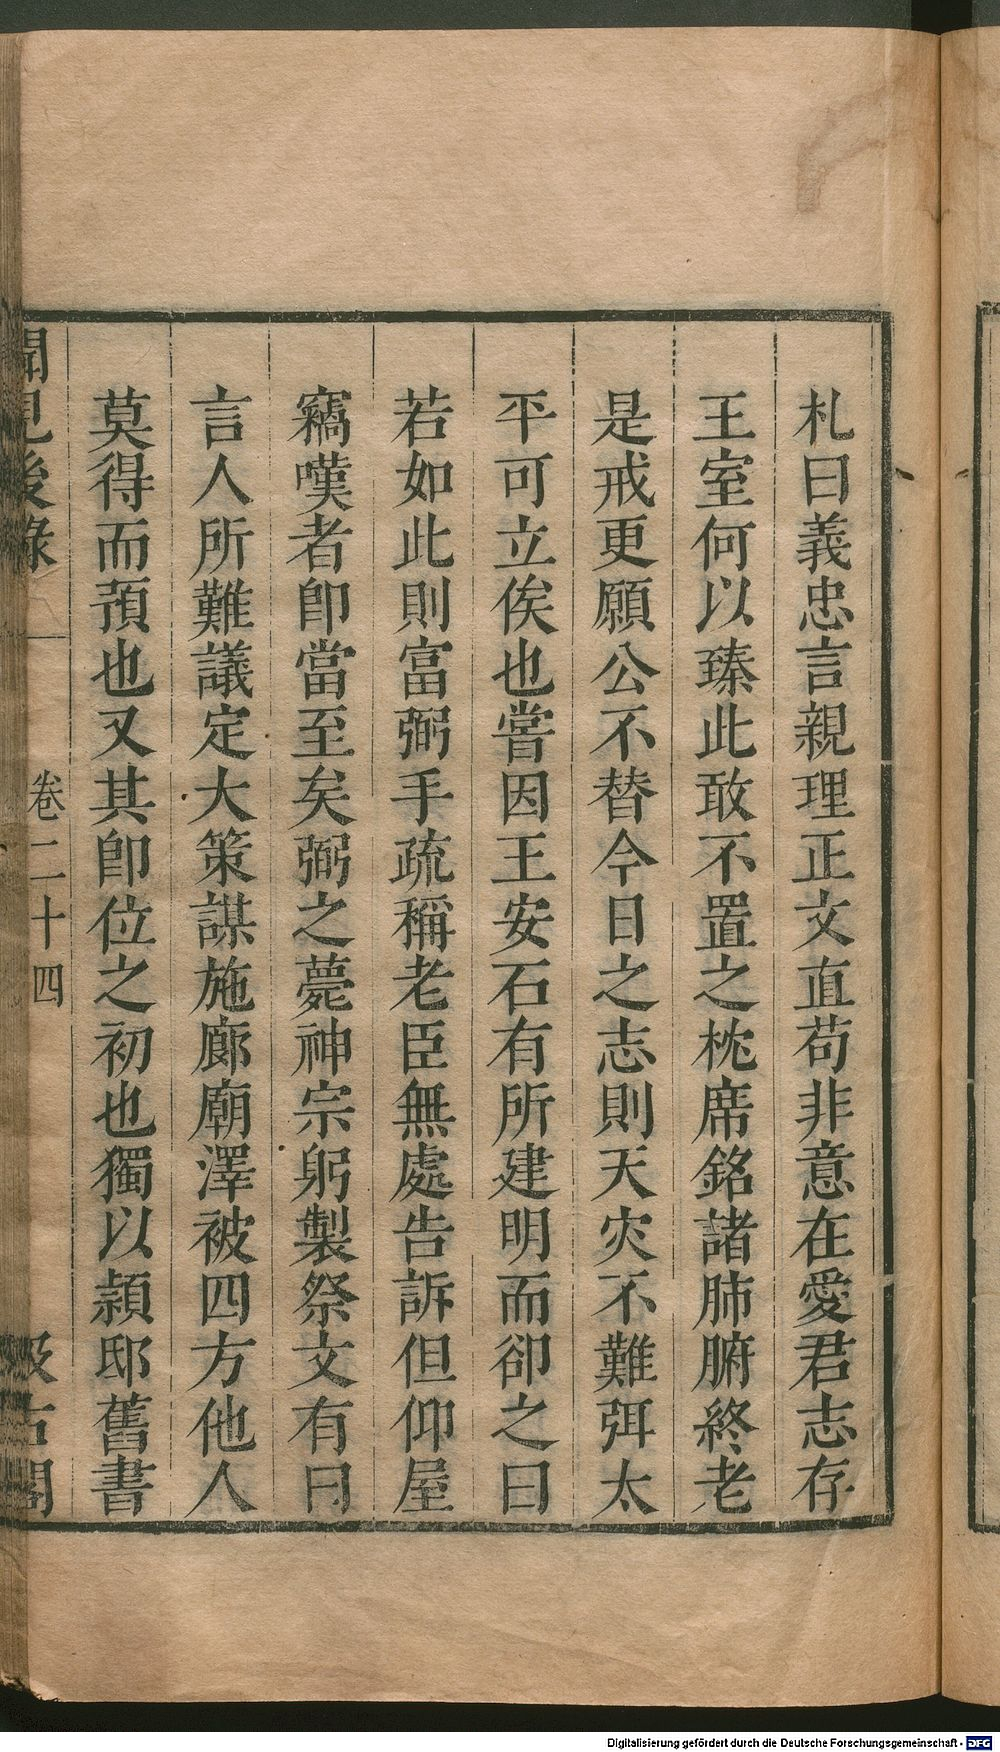 札曰義忠言親理正文直苟非意在愛君志存
王室何以臻此敢不置之枕席銘諸肺腑終老
是戒更願公不替今日之志則天灾不難弭太
平可立俟也嘗因王安石有所建明而卻之曰
若如此則富弼手疏稱老臣無處告訴但仰屋
竊嘆者卽當至矣弼之薨神宗躬製祭文有曰
言人所難議定大策謀施廊廟澤被四方他人
莫得而預也又其卽位之初也獨以潁邸舊書
聞見後錄
卷二十四
汲古閣
Digitalisierung gefördert durch die Deutsche Forschungsgemeinschaft - DFG